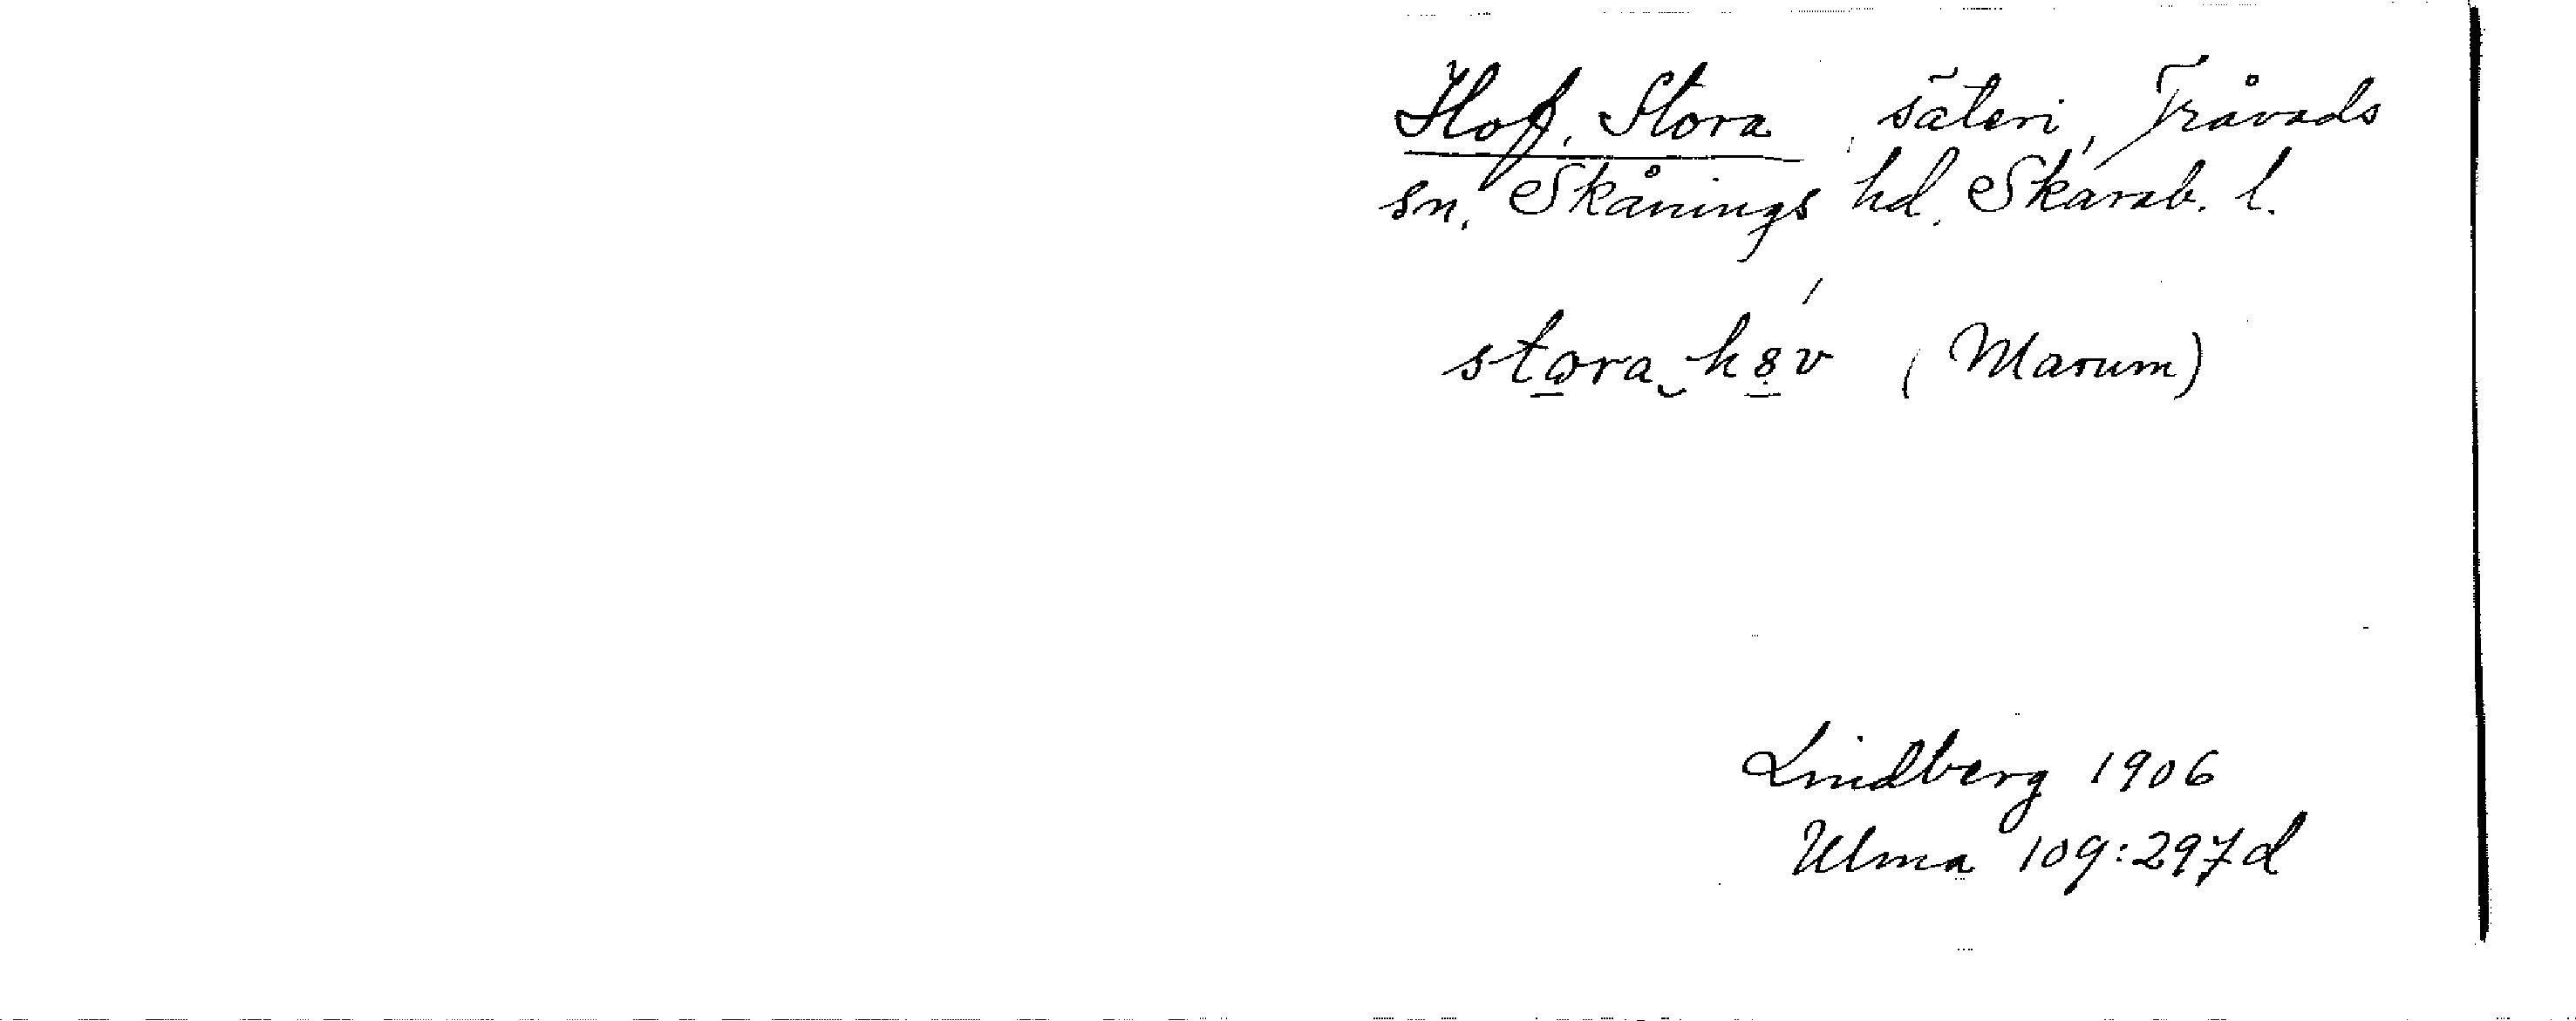 Hof, Stora, säteri, Tråvads
sn, Skånings hd. Skarab. l.
stora hov (Marum)
Lindberg 1906
Ulma 109:297d